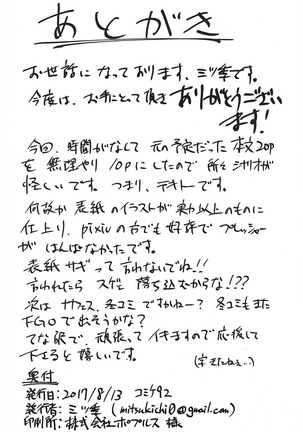 あとがき
お世話になっております、ミツ峯です。
今度は、お手にとって頂き ありがとうござい
ます!
今回、時間がなくて 元の予定だった本文20p
を 無理やり 10pにしたので 所々 シナリオが
怪しいです。つまり、テキトーです。
何故か 表紙のイラストが 実力以上のものに
仕上り、pixivの方でも好評で プレッシャー
が はんぱなかたです。
表紙サギって 言わないでね!!
言われたら スゲェ 落ち込むからな!??
次は サンクリ、冬コミ ですかねー? 冬コミもまた
FGOで出そうかな?
てな訳で、頑張って イキますので応援して
下さると 嬉しいです。
奥付
発行日: 2017/8/13 コミケ92
発行者: ミツ峯 (mitsukichi0@gmail.com)
印刷所: 株式会社ポプルス 様